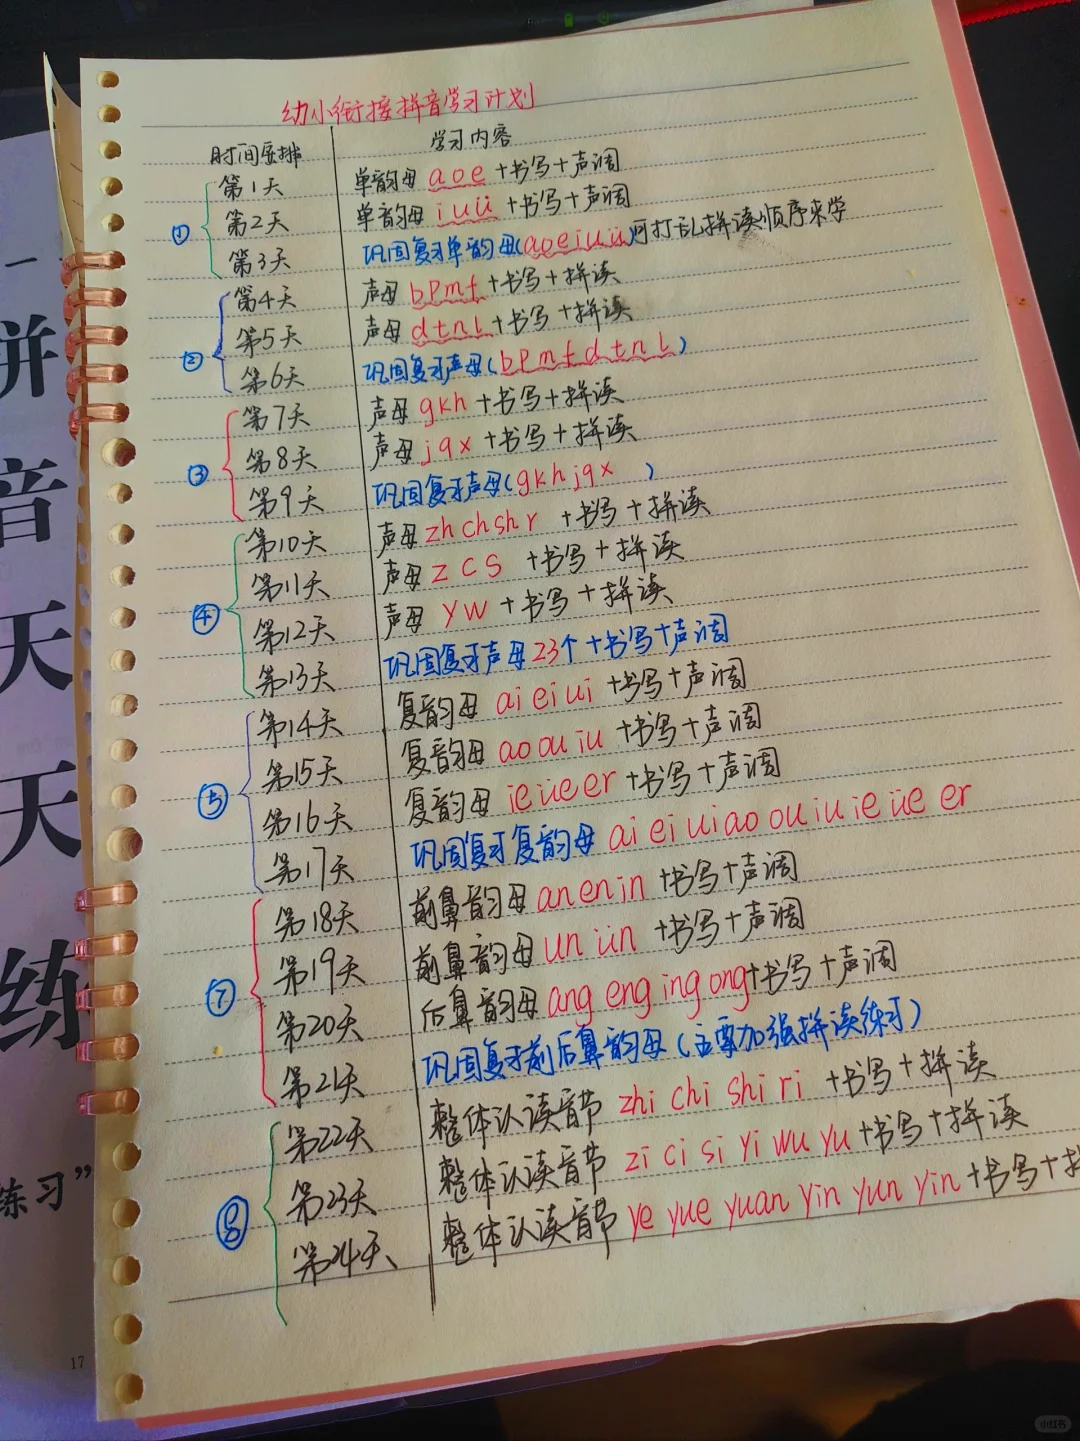 幼小衔接拼音学习计划
时间安排 学习内容
① 第1天 单韵母 a o e +书写+声调
第2天 单韵母 i u ü +书写+声调
第3天 巩固复习单韵母(a o e i u ü)可打乱拼读顺序来学
② 第4天 声母 b p m f +书写+拼读
第5天 声母 d t n l +书写+拼读
第6天 巩固复习声母(b p m f d t n l)
③ 第7天 声母 g k h +书写+拼读
第8天 声母 j q x +书写+拼读
第9天 巩固复习声母(g k h j q x )
④ 第10天 声母 zh ch sh r +书写+拼读
第11天 声母 z c s +书写+拼读
第12天 声母 y w +书写+拼读
第13天 巩固复习声母23个+书写+声调
⑤ 第14天 复韵母 ai ei ui +书写+声调
第15天 复韵母 ao ou iu +书写+声调
第16天 复韵母 ie üe er +书写+声调
第17天 巩固复习复韵母 ai ei ui ao ou iu ie üe er
⑦ 第18天 前鼻韵母 an en in +书写+声调
第19天 前鼻韵母 un ün +书写+声调
第20天 后鼻韵母 ang eng ing ong+书写+声调
第21天 巩固复习前后鼻韵母(主要加强拼读练习)
⑧ 第22天 整体认读音节 zhi chi shi ri +书写+拼读
第23天 整体认读音节 zi ci si yi wu yu +书写+拼读
第24天 整体认读音节 ye yue yuan yin yun yin +书写+拼
拼
音
天
天
练
练习”
17
小红书